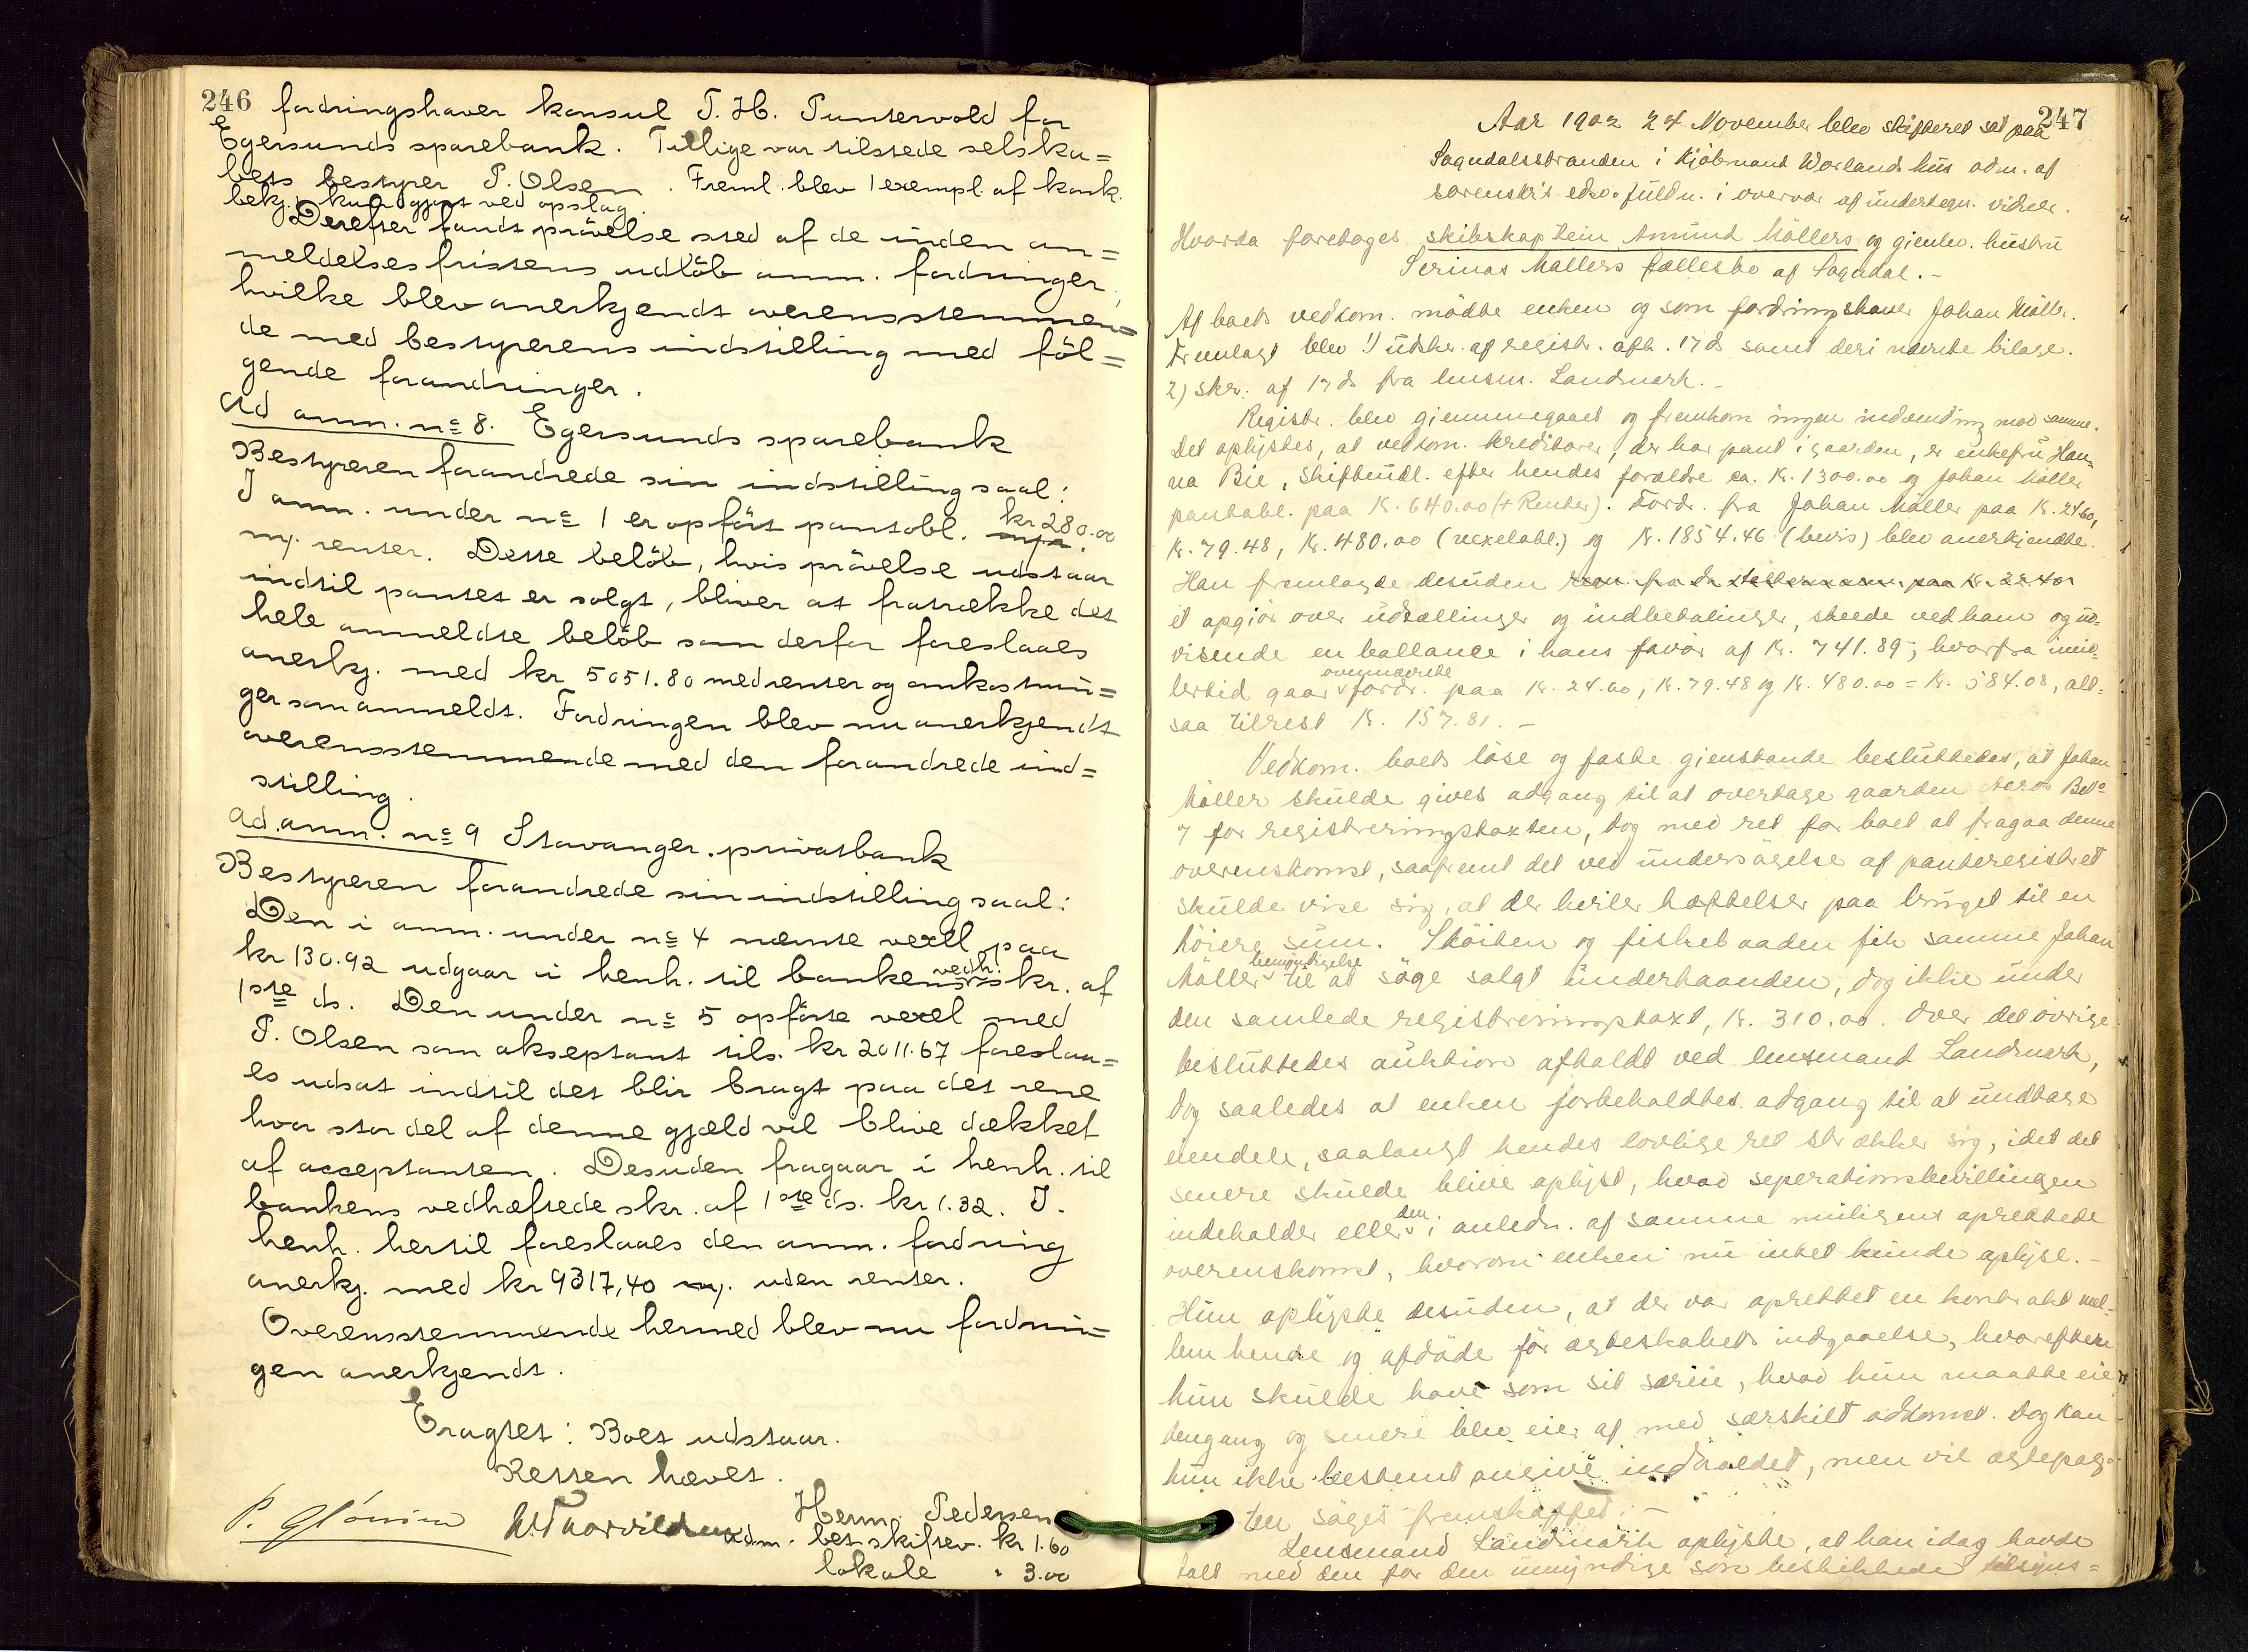 246
fordringshaver konsul T. H. Puntervold for
Egersunds sparebank. Tillige var tilstede selska=
bets bestyrer P. Olsen. Freml. blev 1 exempl. af konk.
bekj. kundgjort ved opslag.
Derefter fandt prøvelse sted af de inden an=
meldelsesfristens udløb anm. fordringer,
hvilke blev anerkjendt overensstemmen=
de med bestyrerens indstilling med føl=
gende forandringer.
Ad anm. no 8. Egersunds sparebank
Bestyreren forandrede sin indstilling saal:
I anm. under no 1 er opført pantobl. kr 280.00
m/ renter. Dette beløb, hvis prøvelse udstaar
indtil pantet er solgt, bliver at fratrække det
hele anmeldte beløb som derfor foreslaaes
anerkj. med kr 5051.80 med renter og omkostnin=
ger som anmeldt. Fordringen blev nu anerkjendt
overensstemmende med den forandrede ind=
stilling.
Ad anm. no 9 Stavanger privatbank
Bestyreren forandrede sin indstilling saal:
Den i anm. under no 4 nævnte vexel paa
kr 130.92 udgaar i henh. til bankens vedh. skr. af
1ste ds. Den under no 5 opførte vexel med
P. Olsen som akseptant tils. kr 2011.67 foreslaa=
es udsat indtil det blir bragt paa det rene
hvor stor del af denne gjæld vil blive dækket
af acceptanten. Desuden fragaar i henh. til
bankens vedhæftede skr. af 1ste ds. kr 1.32. I
henh. hertil foreslaaes den anm. fordring
anerkj. med kr 9317,40 m/. uden renter.
Overensstemmende hermed blev nu fordrin=
gen anerkjendt.
Eragtet: Boet udstaar.
Retten hævet.
Herm. Pedersen
adm. bet skiftev. kr 1.60
lokale " 3.00
247
Aar 1902 24 November blev skifteret sat paa
Sogndalsstranden i Kjøbmand Worlands hus adm. af
sorenskr's edsv. fuldm. i overvær af undertegn. vidner.
Hvorda foretoges skibskaptein Amund Møllers og gjenlev. hustru
Serinas Møllers fællesbo af Sogndal. -
Af boets vedkom. mødte enken og som fordringshaver Johan Møller.
Fremlagt blev 1) udskr. af registr. afh. 17 ds samt deri nævnte bilage.
2) skr. af 17 ds fra lensm. Landmark. -
Registr. blev gjennemgaaet og fremkom ingen indvending mod samme.
Det oplystes, at vedkom. kreditorer, der har pant i gaarden, er enkefru Han=
na Bie, Skifteudl. efter hendes forældre ca. Kr. 1300.00 og Johan Møller
pantobl. paa Kr. 640.00 (+ Renter). Fordr. fra Johan Møller paa Kr. 24.60,
Kr. 79.48, Kr. 480.00 (vexelobl.) og Kr. 1854.46 (bevis) blev anerkjendte.
Han fremlagde desuden
et opgjør over udtællinger og indbetalinger, skeede ved ham og ud=
visende en ballance i hans favør af Kr. 741.89; hvorfra imid=
lertid gaar ovennævnte fordr. paa Kr. 24.60, Kr. 79.48 og Kr. 480.00 = Kr. 584.08, alt=
saa tilrest Kr. 157.81. -
Vedkom. boets løse og faste gjenstande besluttedes, at Johan
Møller skulde gives adgang til at overtage gaarden
7 for registreringstaxten, dog med ret for boet at fragaa denne
overenskomst, saafremt det ved undersøgelse af panteregistret
skulde vise sig, at der hviler hæftelser paa bruget til en
høiere sum. Skøiten og fiskebaaden fik samme Johan
Møller bemyndigelse til at søge solgt underhaanden, dog ikke under
den samlede registreringstaxt, Kr. 310.00. Over det øvrige
besluttedes auktion afholdt ved lensmand Landmark,
dog saaledes at enken forbeholdtes adgang til at undtage
eiendele, saalangt hendes lovlige ret strækker sig, idet det
senere skulde blive oplyst, hvad seperationsbevillingen
indeholder eller den i anledn. af samme muligens oprettede
overenskomst, hvorom enken nu intet kunde oplyse. -
Hun oplyste desuden, at der var oprettet en kontrakt mel=
lem hende og afdøde før ægteskabets indgaaelse, hvorefter
hun skulde have som sit særeie, hvad hun maatte eie
dengang og senere blev eier af med særskilt adkomst. Dog kan
hun ikke bestemt angive indholdet, men vil ægtepag=
ten søges fremskaffet. -
Lensmand Landmark oplyste, at han idag havde
talt med den for den umyndige søn beskikkede tilsyns=